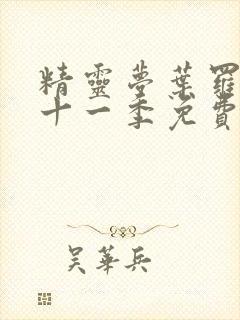 精靈夢葉羅
十一季免費
吴華兵